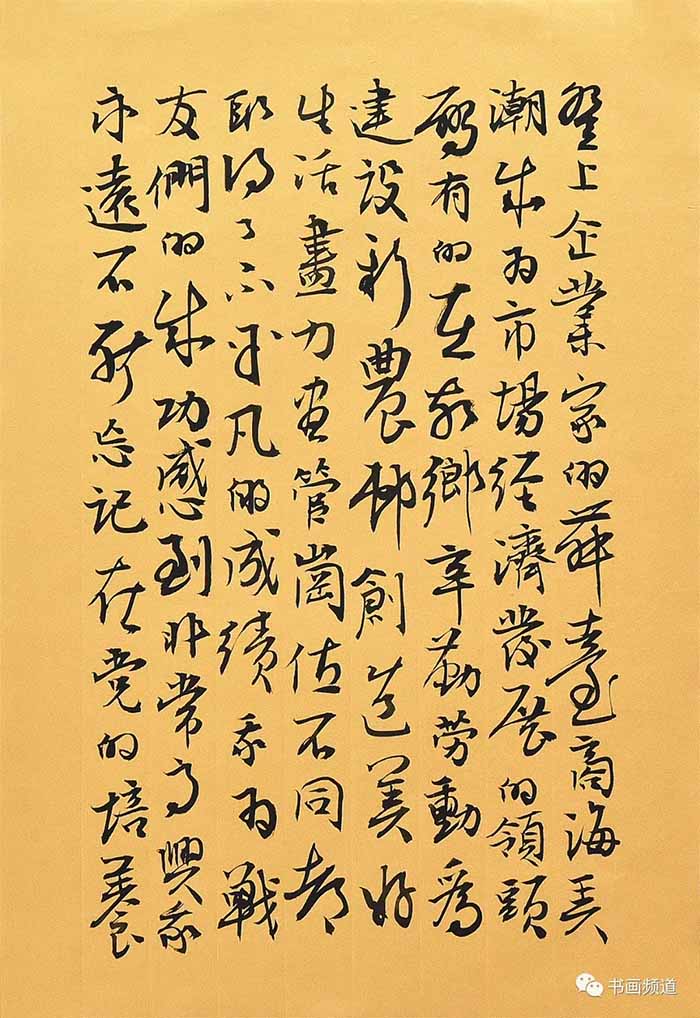 登上企業家的舞臺商海弄
潮成为市場经濟發展的領頭
雁有的在故鄉辛勤劳動爲
建設新農邨創造美好
生活盡力尽管崗位不同都
取得了不平凡的成绩我为戰
友們的成功感到非常高興我
永遠不能忘記在党的培養
书画频道